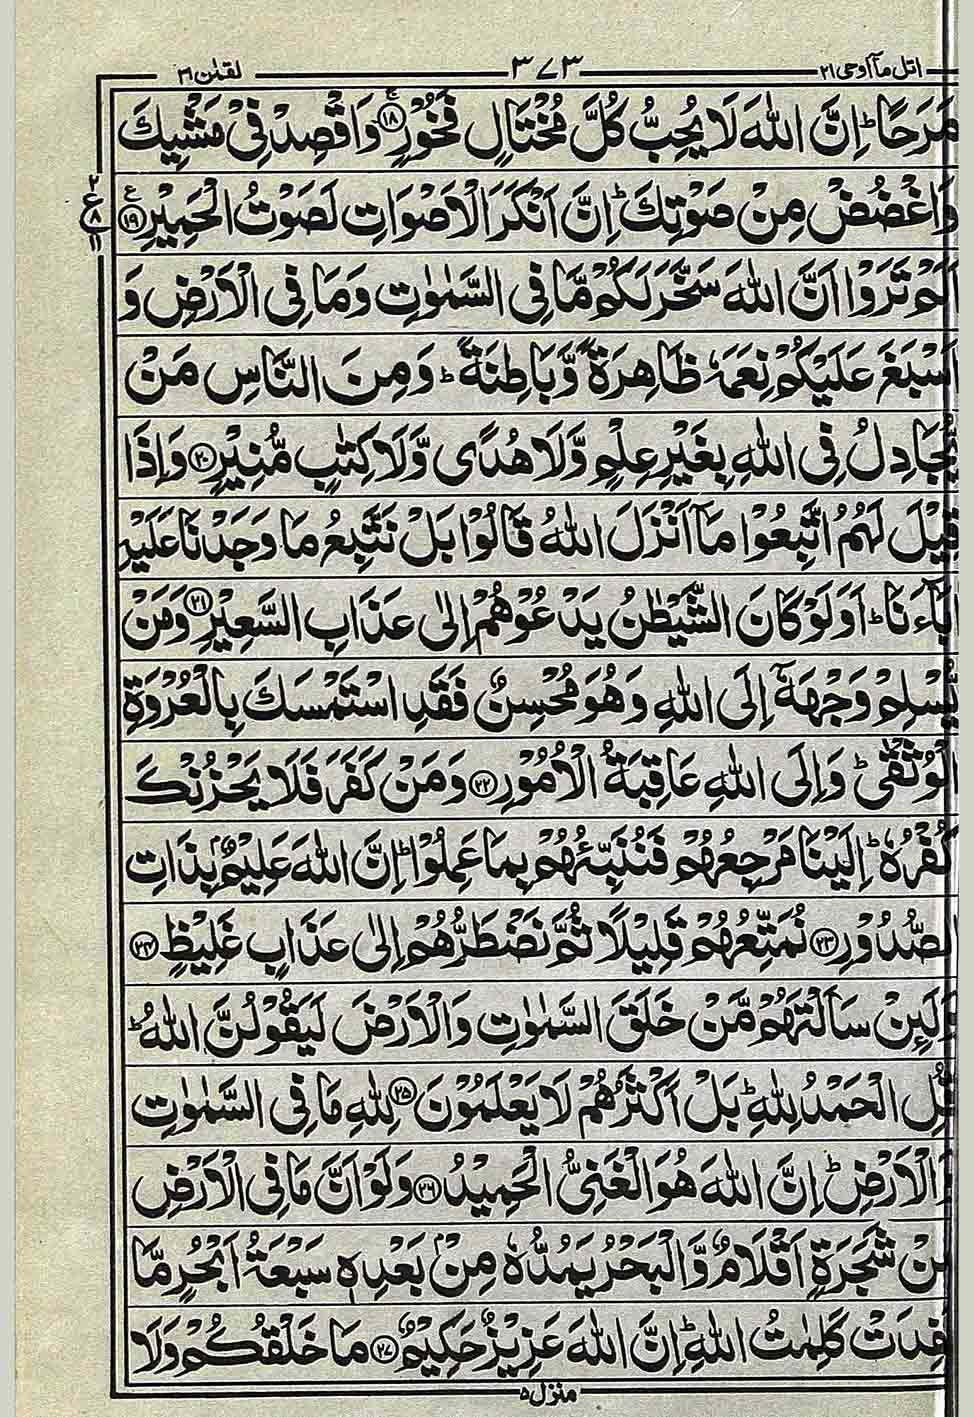 اتل مآ اوحی ۲۱ ۳۷۳ لقمٰن ۳۱
مَرَحًا ؕ اِنَّ اللّٰهَ لَا یُحِبُّ كُلَّ مُخْتَالٍ فَخُوْرٍ ۱۸ وَاقْصِدْ فِیْ مَشْیِكَ
وَاغْضُضْ مِنْ صَوْتِكَ ؕ اِنَّ اَنْكَرَ الْاَصْوَاتِ لَصَوْتُ الْحَمِیْرِ ۱۹
اَلَمْ تَرَوْا اَنَّ اللّٰهَ سَخَّرَ لَكُمْ مَّا فِی السَّمٰوٰتِ وَمَا فِی الْاَرْضِ وَ
اَسْبَغَ عَلَیْكُمْ نِعَمَهٗ ظَاهِرَةً وَّبَاطِنَةً ؕ وَمِنَ النَّاسِ مَنْ
یُّجَادِلُ فِی اللّٰهِ بِغَیْرِ عِلْمٍ وَّلَا هُدًی وَّلَا كِتٰبٍ مُّنِیْرٍ ۲۰ وَاِذَا
قِیْلَ لَهُمُ اتَّبِعُوْا مَاۤ اَنْزَلَ اللّٰهُ قَالُوْا بَلْ نَتَّبِعُ مَا وَجَدْنَا عَلَیْهِ
اٰبَآءَنَا ؕ اَوَلَوْ كَانَ الشَّیْطٰنُ یَدْعُوْهُمْ اِلٰی عَذَابِ السَّعِیْرِ ۲۱ وَمَنْ
یُّسْلِمْ وَجْهَهٗۤ اِلَی اللّٰهِ وَهُوَ مُحْسِنٌ فَقَدِ اسْتَمْسَكَ بِالْعُرْوَةِ
الْوُثْقٰی ؕ وَاِلَی اللّٰهِ عَاقِبَةُ الْاُمُوْرِ ۲۲ وَمَنْ كَفَرَ فَلَا یَحْزُنْكَ
كُفْرُهٗ ؕ اِلَیْنَا مَرْجِعُهُمْ فَنُنَبِّئُهُمْ بِمَا عَمِلُوْا ؕ اِنَّ اللّٰهَ عَلِیْمٌۢ بِذَاتِ
الصُّدُوْرِ ۲۳ نُمَتِّعُهُمْ قَلِیْلًا ثُمَّ نَضْطَرُّهُمْ اِلٰی عَذَابٍ غَلِیْظٍ ۲۴
وَلَئِنْ سَاَلْتَهُمْ مَّنْ خَلَقَ السَّمٰوٰتِ وَالْاَرْضَ لَیَقُوْلُنَّ اللّٰهُ ؕ
قُلِ الْحَمْدُ لِلّٰهِ ؕ بَلْ اَكْثَرُهُمْ لَا یَعْلَمُوْنَ ۲۵ لِلّٰهِ مَا فِی السَّمٰوٰتِ
وَالْاَرْضِ ؕ اِنَّ اللّٰهَ هُوَ الْغَنِیُّ الْحَمِیْدُ ۲۶ وَلَوْ اَنَّ مَا فِی الْاَرْضِ
مِنْ شَجَرَةٍ اَقْلَامٌ وَّالْبَحْرُ یَمُدُّهٗ مِنْۢ بَعْدِهٖ سَبْعَةُ اَبْحُرٍ مَّا
نَفِدَتْ كَلِمٰتُ اللّٰهِ ؕ اِنَّ اللّٰهَ عَزِیْزٌ حَكِیْمٌ ۲۷ مَا خَلْقُكُمْ وَلَا
منزل ۵
۲
ع
۸
۱۱